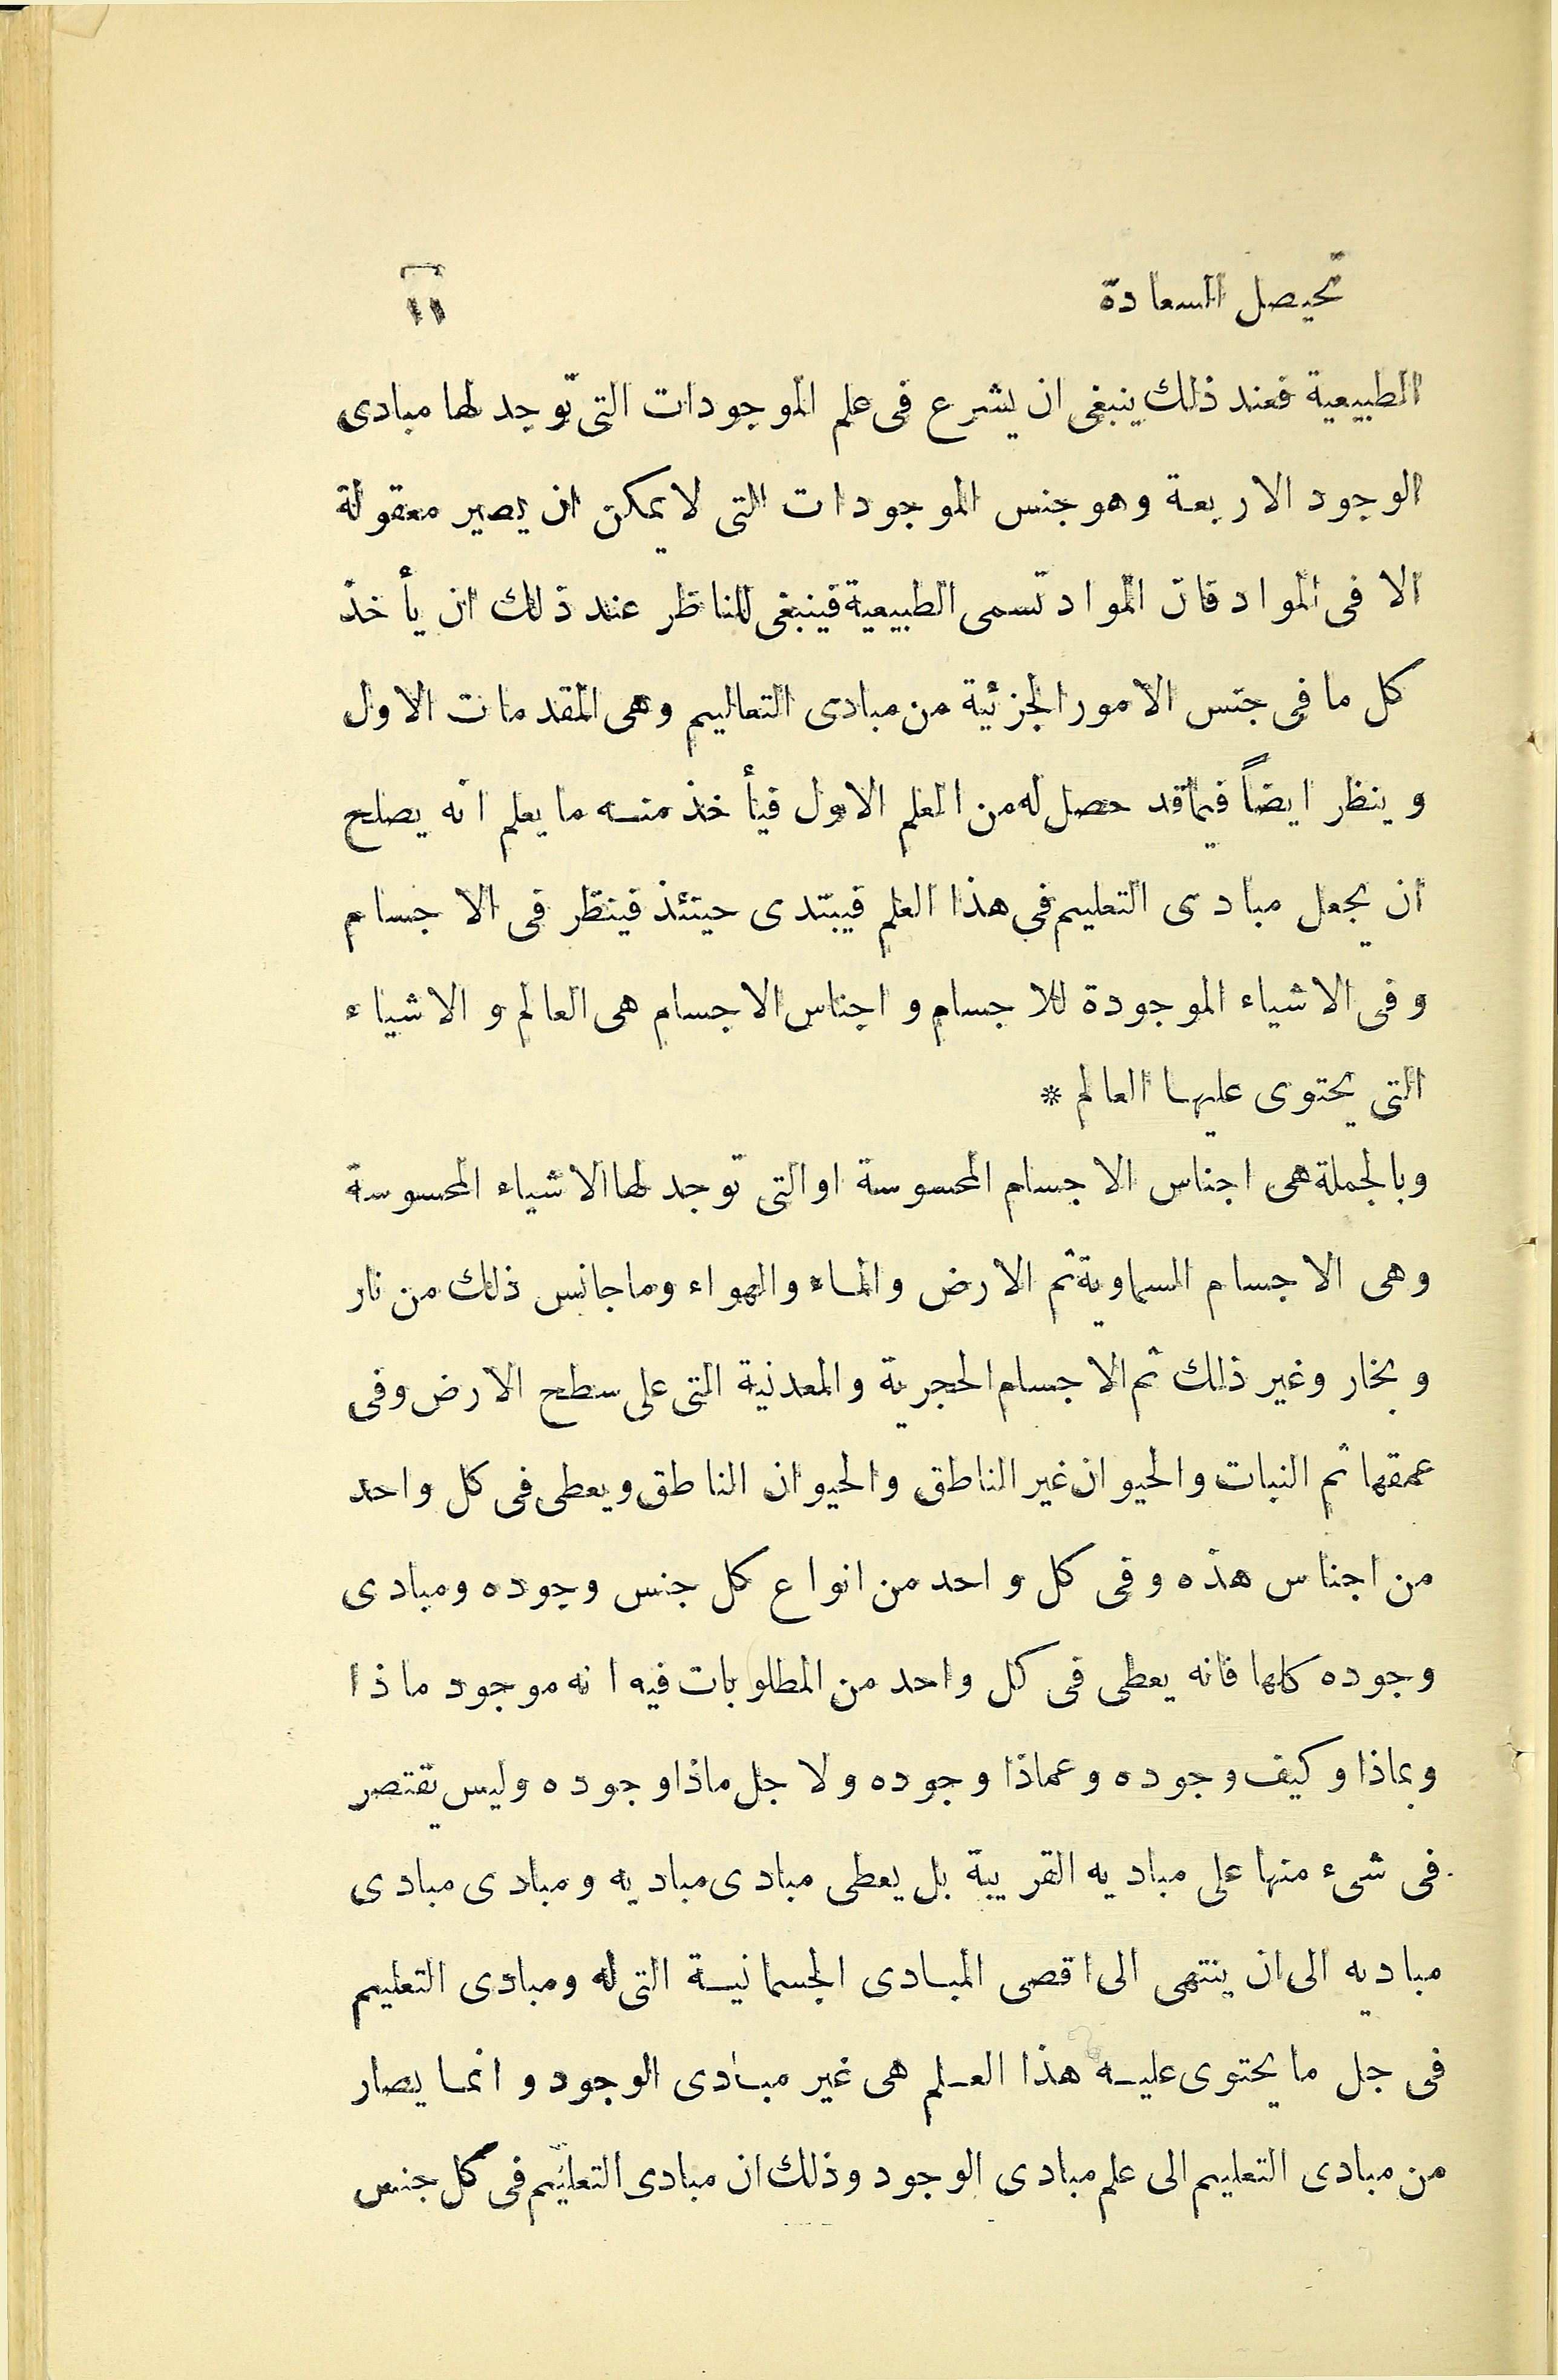 تحيصل السعادة ١١
الطبيعية فعند ذلك ينبغى ان يشرع فى علم الموجودات التى توجد لها مبادى
الوجود الاربعة وهو جنس الموجودات التى لا يمكن ان يصير معقولة
الا فى المواد فان المواد تسمى الطبيعية فينبغى للناظر عند ذلك ان يأخذ
كل ما فى جنس الامور الجزئية من مبادى التعاليم وهى المقدمات الاول
وينظر ايضاً فيما قد حصل له من العلم الاول فيأخذ منه ما يعلم انه يصلح
ان يجعل مبادى التعليم فى هذا العلم فيبتدى حيتئذ فينظر فى الاجسام
وفى الاشياء الموجودة للاجسام و اجناس الاجسام هى العالم و الاشياء
التى يحتوى عليها العالم *
وبالجملة هى اجناس الاجسام المحسوسة او التى توجد لها الاشياء المحسوسة
وهى الاجسام السماوية ثم الارض والماء والهواء وما جانس ذلك من نار
وبخار وغير ذلك ثم الاجسام الحجرية والمعدنية التى على سطح الارض وفى
عمقها ثم النبات والحيوان غير الناطق والحيوان الناطق ويعطى فى كل واحد
من اجناس هذه وفى كل واحد من انواع كل جنس وجوده ومبادى
وجوده كلها فانه يعطى فى كل واحد من المطلوبات فيه انه موجود ماذا
وبماذا وكيف وجوده وعماذا وجوده ولاجل ماذا وجوده وليس يقتصر
فى شىء منها على مباديه القريبة بل يعطى مبادى مباديه ومبادى مبادى
مباديه الى ان ينتهى الى اقصى المبادى الجسمانية التى له ومبادى التعليم
فى جل ما يحتوى عليه هذا العلم هى غير مبادى الوجود و انما يصار
من مبادى التعليم الى علم مبادى الوجود وذلك ان مبادى التعليم فى كل جنس